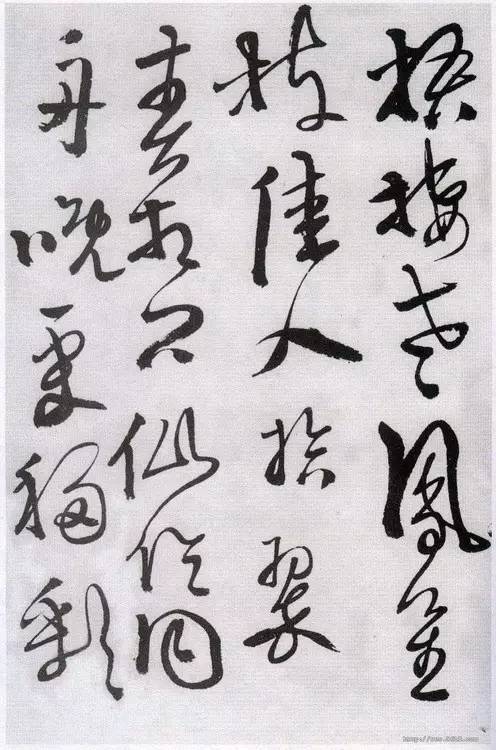 梧棲老鳳皇
枝佳人拾翠
春相問仙侶同
舟晚更移彩